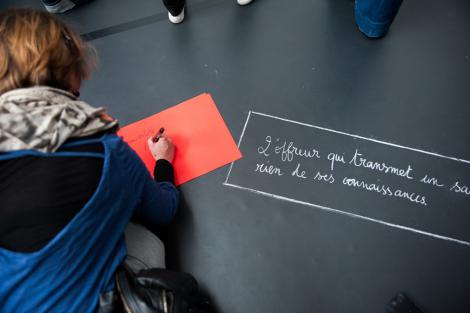 L'offreur qui transmet un sa
rien de ses connaissances.